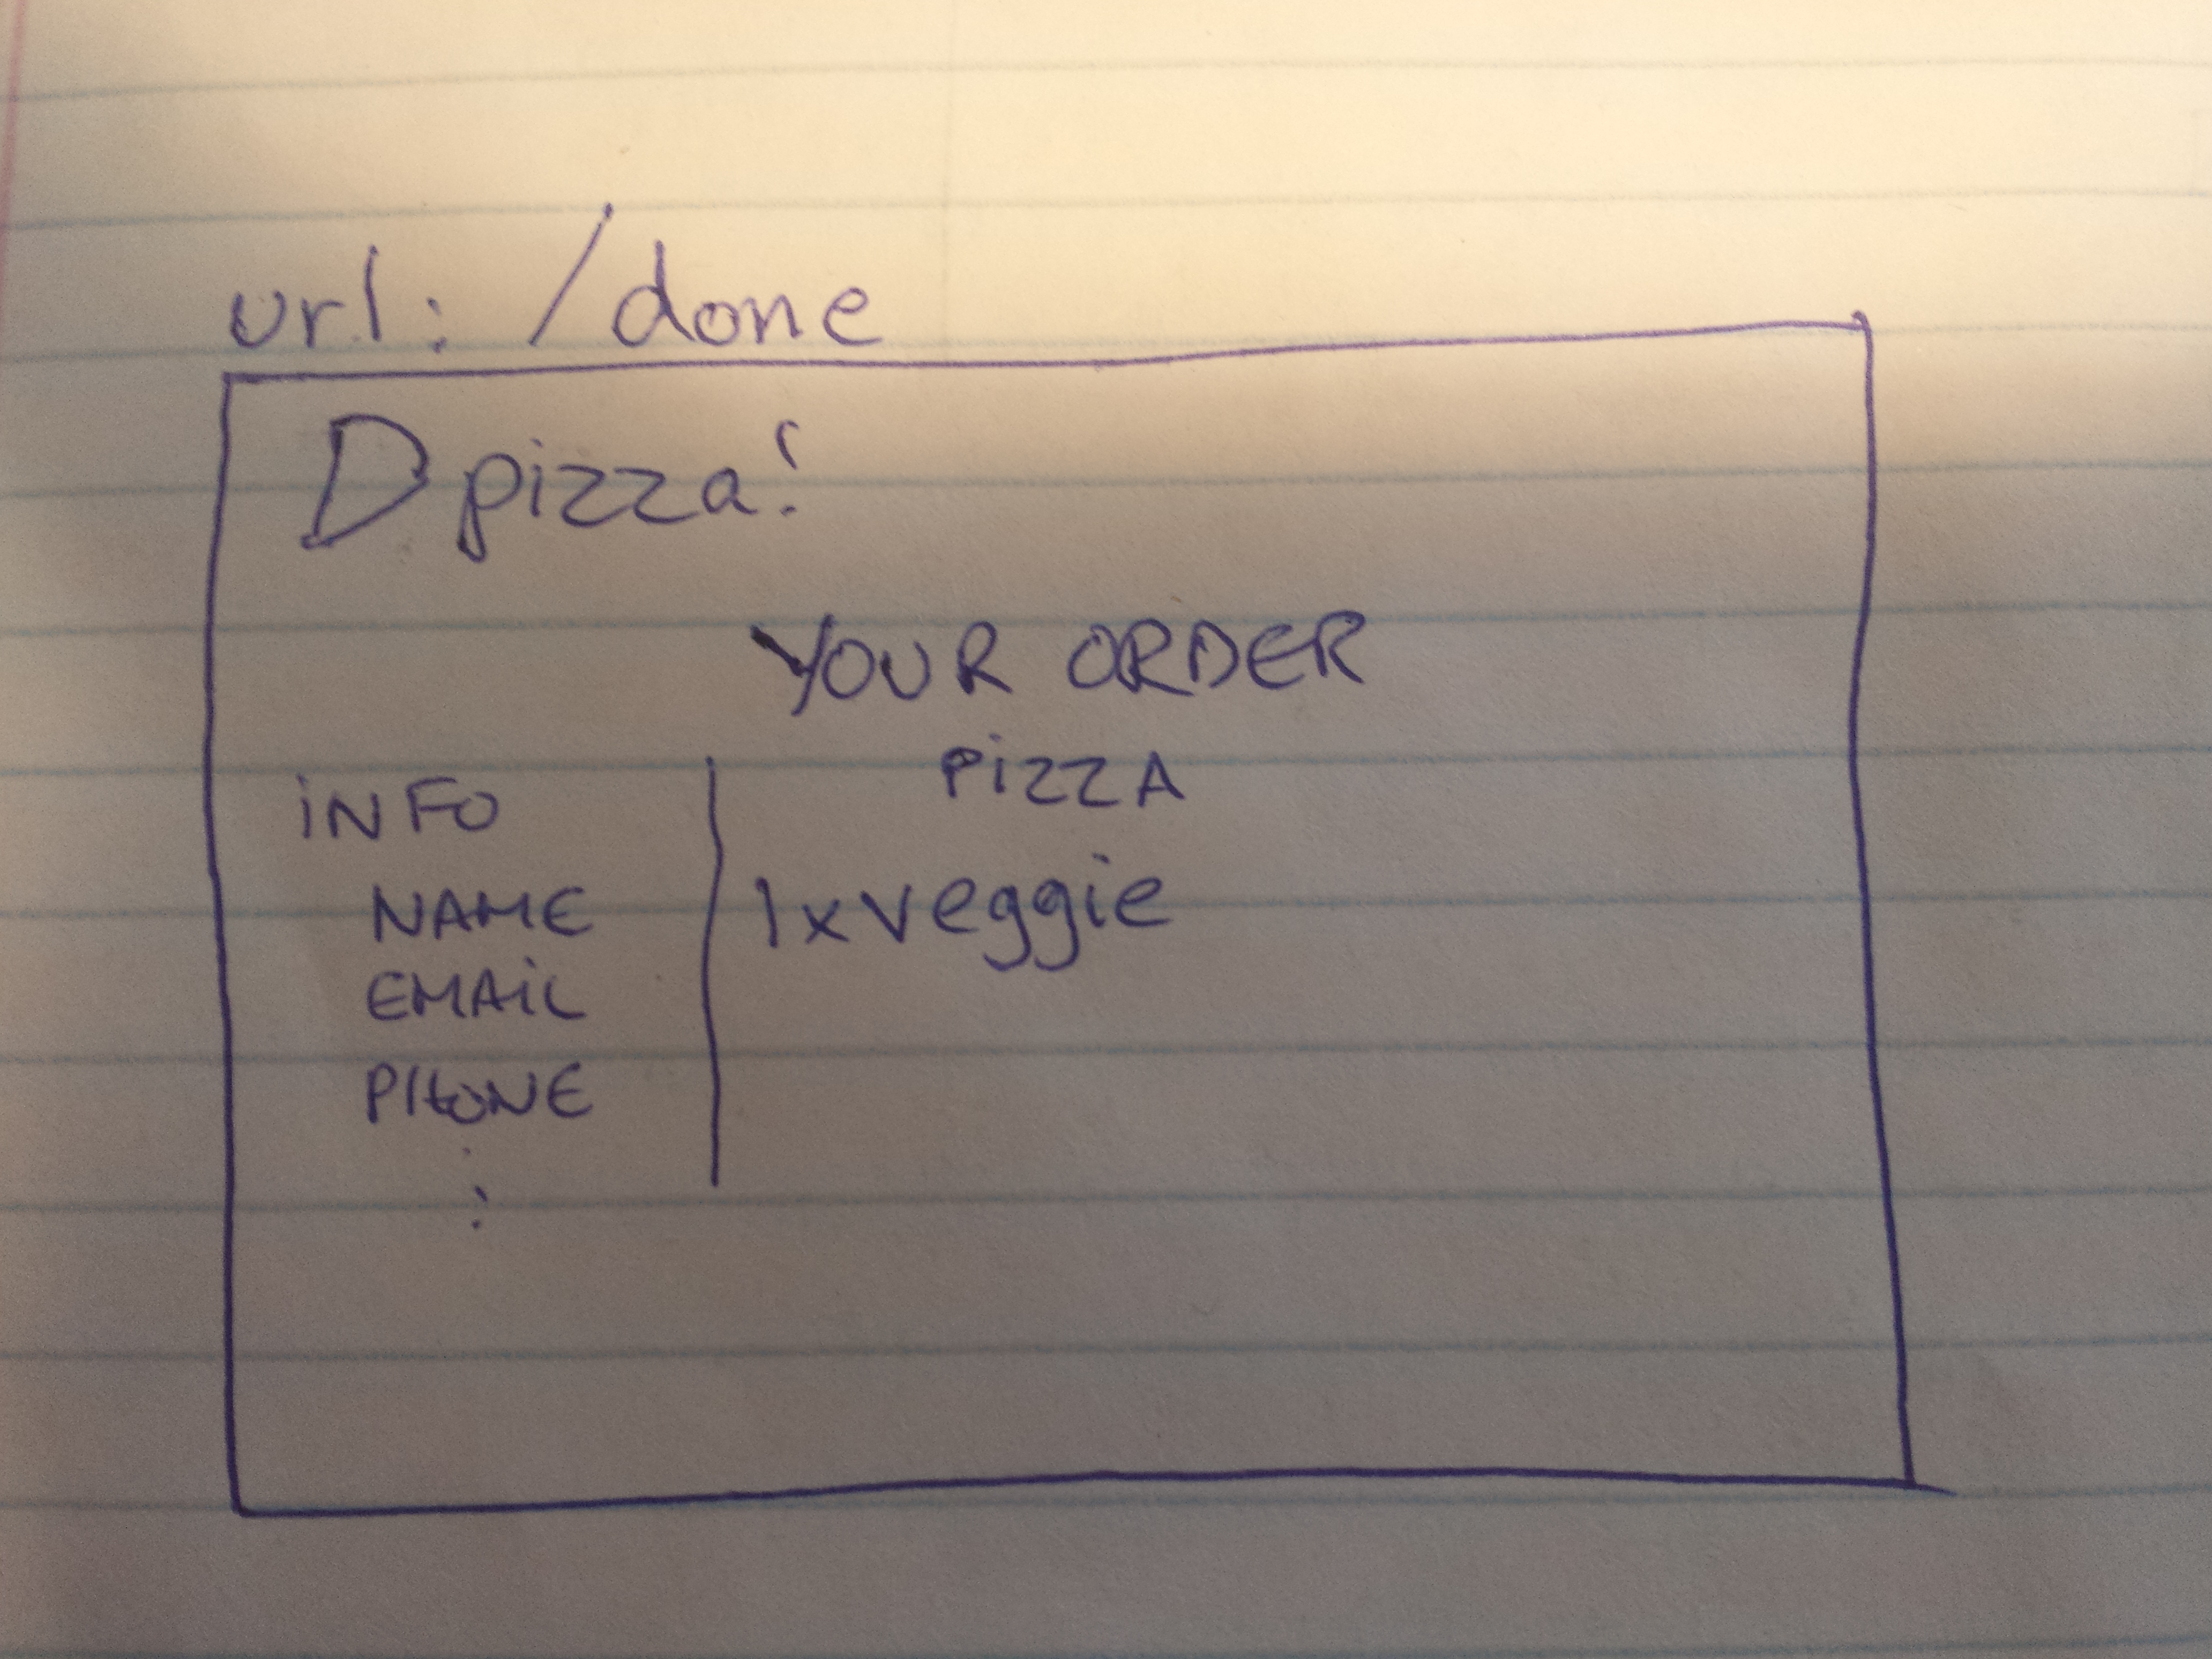 url: /done
D pizza!
YOUR ORDER
iNFO
NAME
EMAiL
PHONE
:
PiZZA
1x veggie